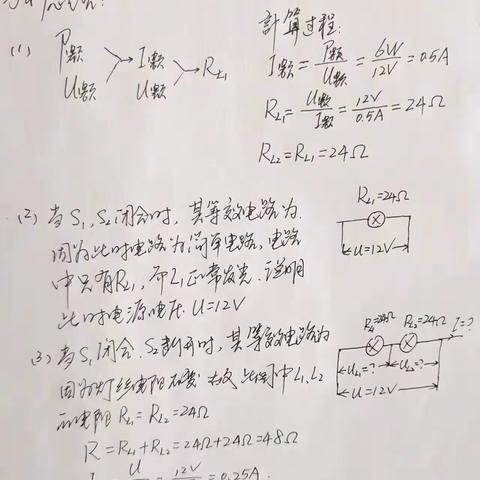 (1) P额 U额 → I额 U额 → R_L1
计算过程:
I额 = P额/U额 = 6W/12V = 0.5A
R_L1 = U额/I额 = 12V/0.5A = 24Ω
R_L2 = R_L1 = 24Ω
(2) 当S₁,S₂闭合时, 其等效电路为.
因为此时电路为简单电路, 电路
中只有R_L1, 而L₁正常发光. 说明
此时电源电压 U=12V
R_L1=24Ω
U=12V
(3) 当S₁闭合. S₂断开时, 其等效电路为
因为灯丝电阻不变 故 此图中L₁,L₂
的电阻 R_L1 = R_L2 = 24Ω
R = R_L1 + R_L2 = 24Ω+24Ω=48Ω
I = U/ = 12V/ = 0.25A.
R_L1=24Ω R_L2=24Ω I=?
U_L1=? U_L2=?
U=12V